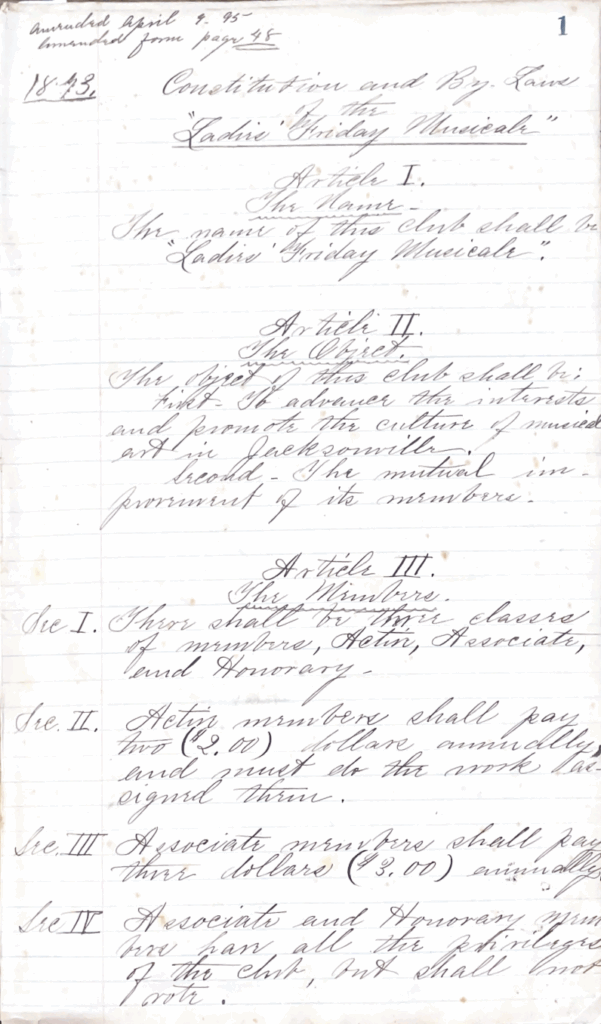 amended April 9. 95
amended form page 48
1
1893.
Constitution and By. Laws
of the
"Ladies' Friday Musicale"
Article I.
The Name.
The name of this club shall be
"Ladies' Friday Musicale".
Article II.
The Object.
The object of this club shall be:
First - To advance the interests
and promote the culture of musical
art in Jacksonville.
Second - The mutual im-
provement of its members.
Article III.
The Members.
Sec I. There shall be three classes
of members, Active, Associate,
and Honorary.
Sec. II. Active members shall pay
two ($2.00) dollars annually
and must do the work as-
signed them.
Sec. III Associate members shall pay
three dollars ($3.00) annually.
Sec IV Associate and Honorary mem
bers have all the privileges
of the club, but shall not
vote.